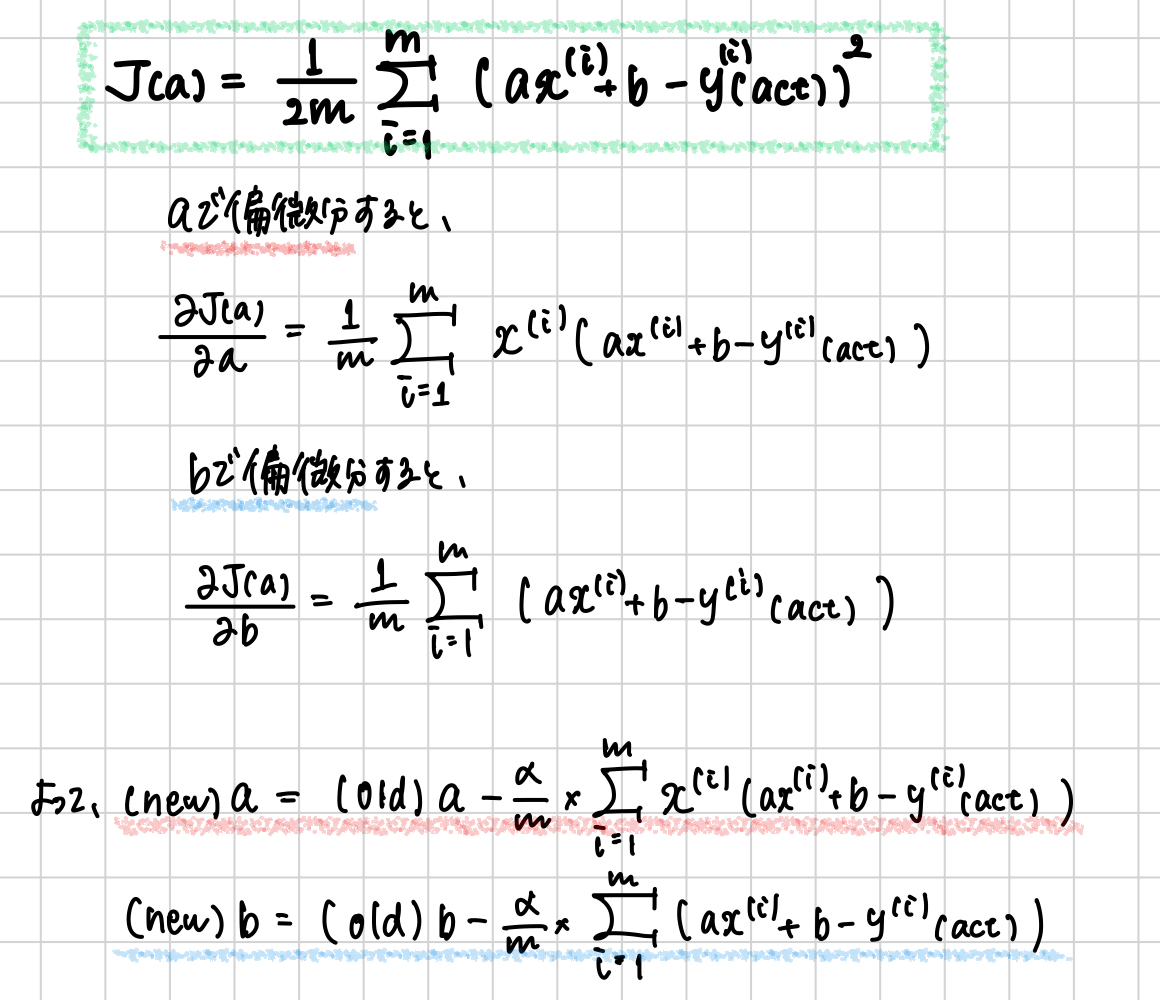 J(a) = 1/2m Σ_{i=1}^{m} (ax^{(i)} + b - y^{(i)}(act))^2
aで偏微分すると、
∂J(a)/∂a = 1/m Σ_{i=1}^{m} x^{(i)}(ax^{(i)} + b - y^{(i)}(act))
bで偏微分すると、
∂J(a)/∂b = 1/m Σ_{i=1}^{m} (ax^{(i)} + b - y^{(i)}(act))
よって、(new) a = (old) a - α/m × Σ_{i=1}^{m} x^{(i)}(ax^{(i)} + b - y^{(i)}(act))
(new) b = (old) b - α/m × Σ_{i=1}^{m} (ax^{(i)} + b - y^{(i)}(act))